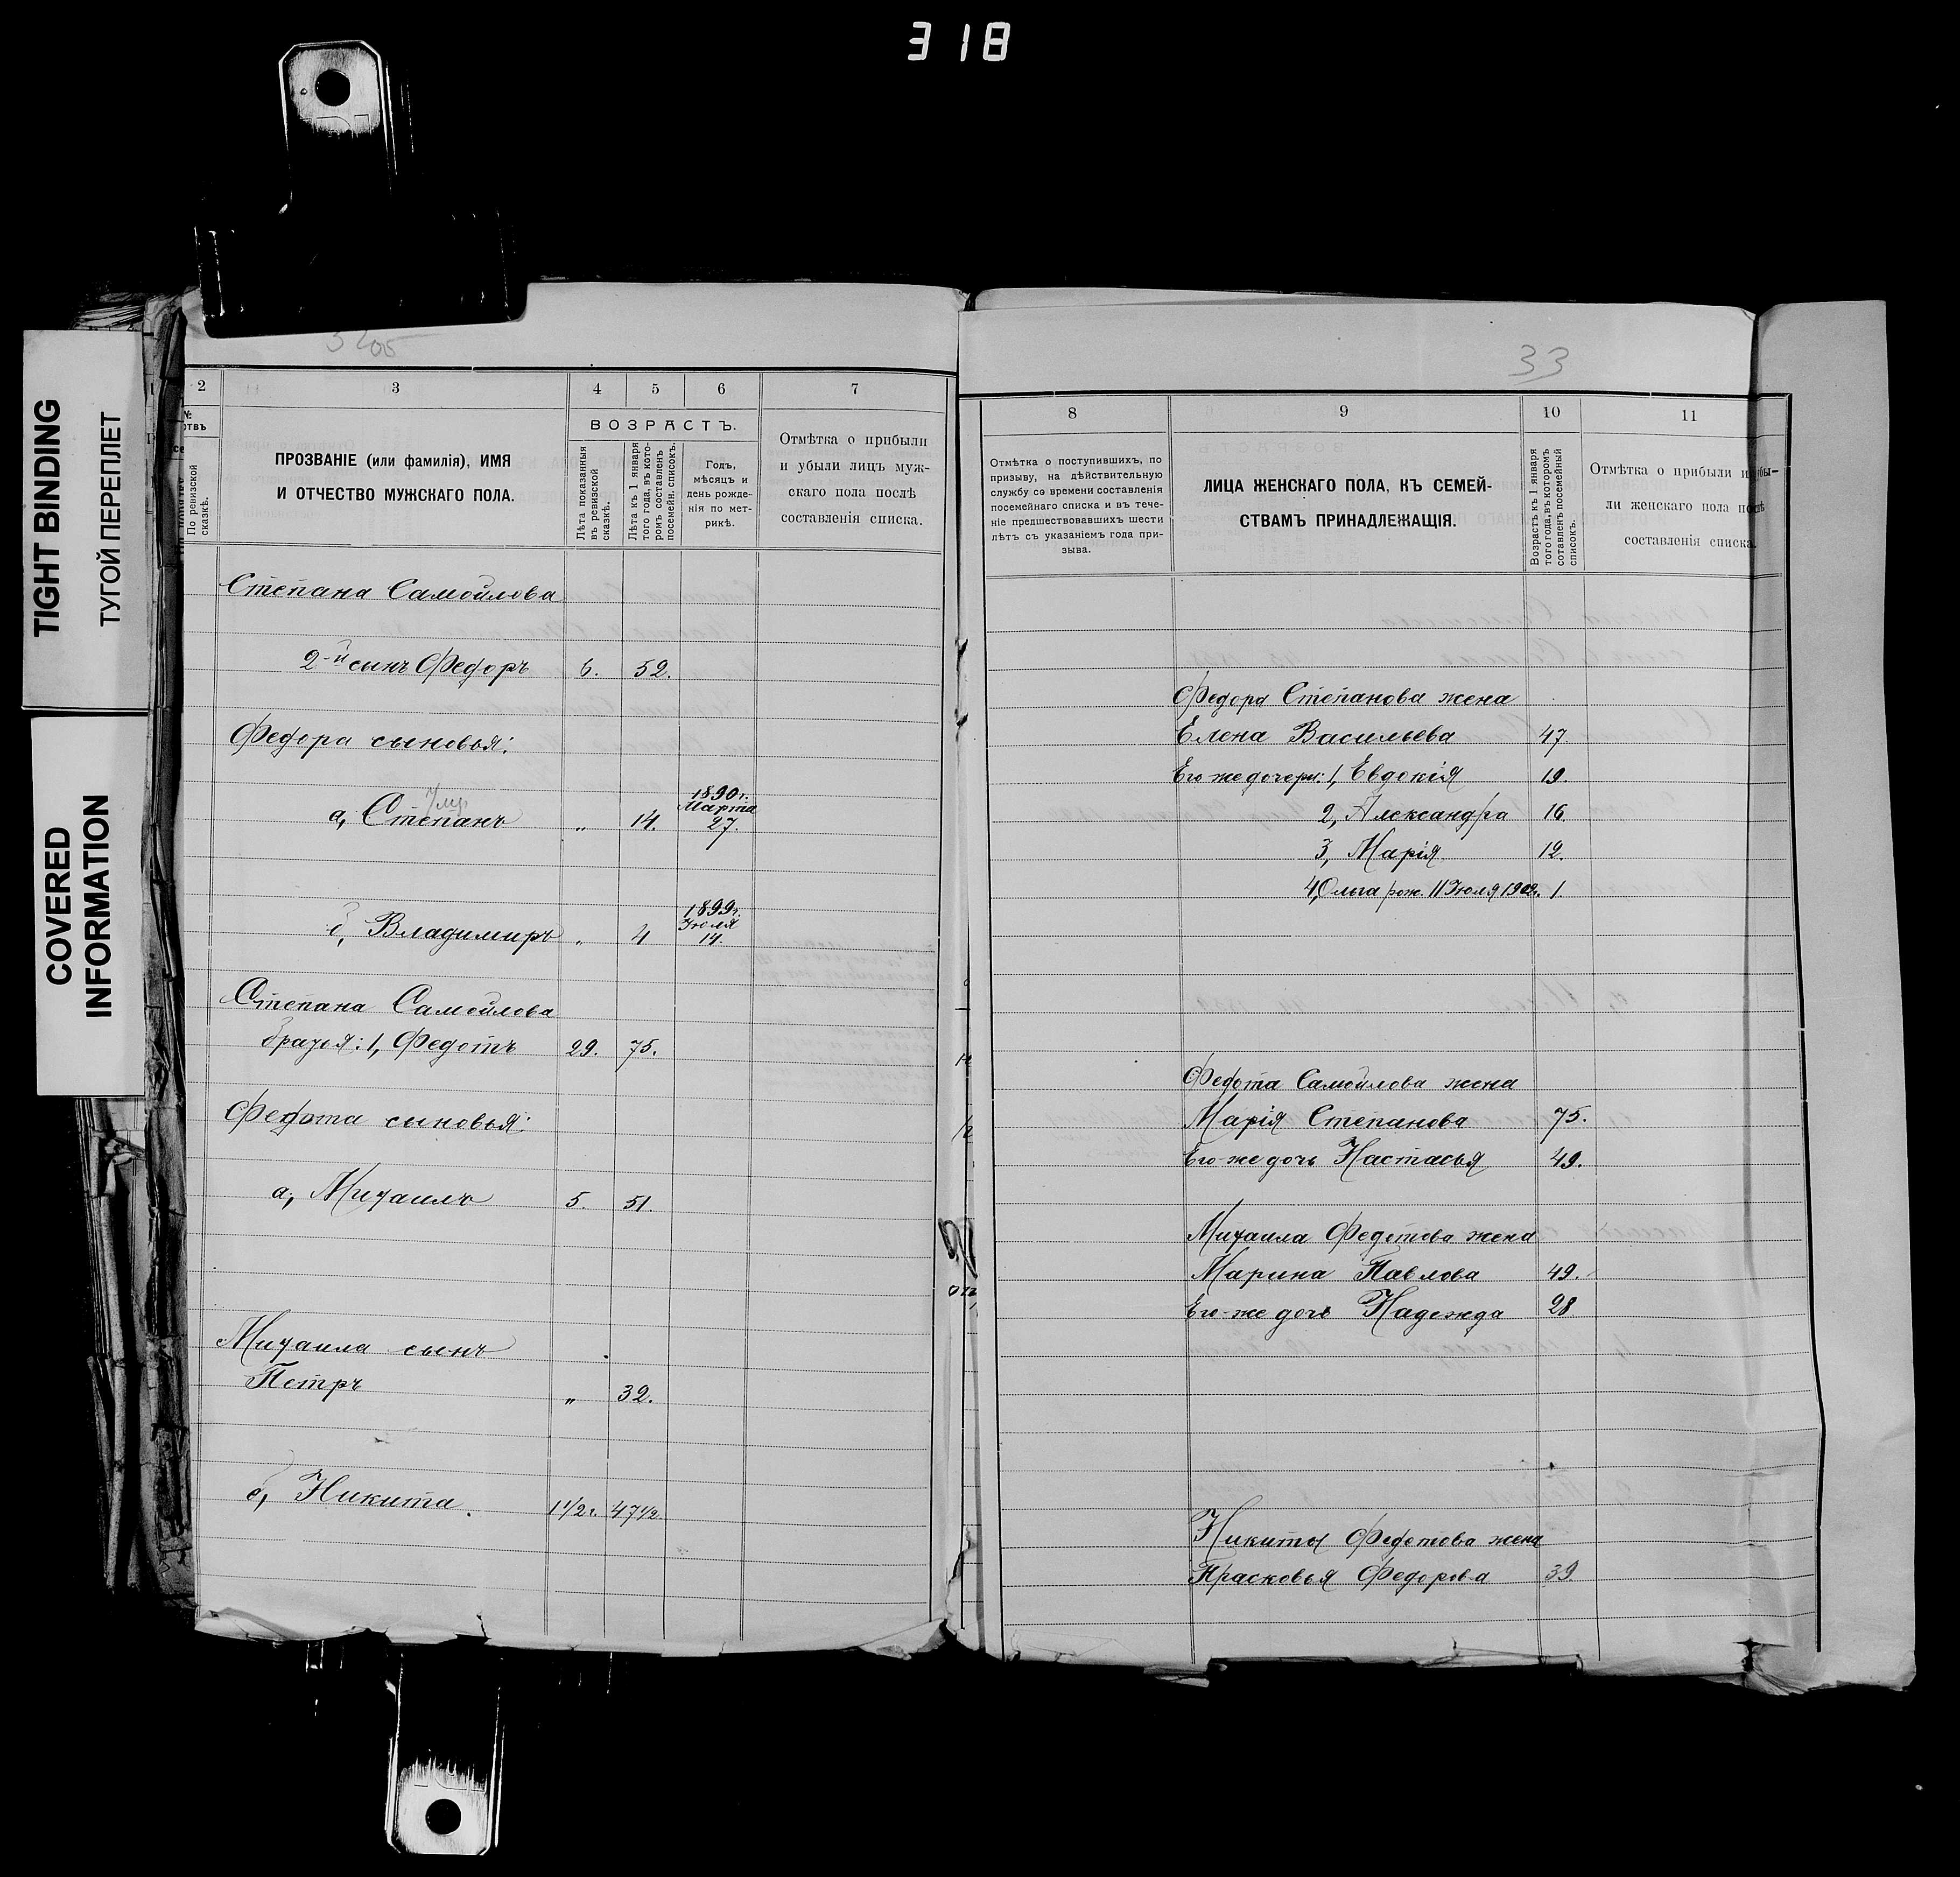 318
TIGHT BINDING
ТУГОЙ ПЕРЕПЛЕТ
COVERED
INFORMATION
2
3
4
5
6
7
По ревизской сказкѣ.
ПРОЗВАНІЕ (или фамилія), ИМЯ
И ОТЧЕСТВО МУЖСКАГО ПОЛА.
ВОЗРАСТЪ.
Лѣта показанныя
въ ревизской
сказкѣ.
Лѣта къ 1 января
того года, въ кото-
ромъ составленъ
посемейн. списокъ.
Годъ,
мѣсяцъ и
день рожде-
нія по мет-
рикѣ.
Отмѣтка о прибыли
и убыли лицъ муж-
скаго пола послѣ
составленія списка.
Степана Самойлова
2-й сынъ Федоръ 6. 52.
Федора сыновья:
Умр
а, Степанъ „ 14. 1890 г. Марта 27.
б, Владимиръ „ 4 1899 г. Іюля 14.
Степана Самойлова
братья: 1, Федотъ 29. 75.
Федота сыновья:
а, Михаилъ 5. 51.
Михаила сынъ
Петръ „ 32.
б, Никита. 1 1/2 г. 47 1/2
33
8
9
10
11
Отмѣтка о поступившихъ, по
призыву, на дѣйствительную
службу со времени составленія
посемейнаго списка и въ тече-
ніе предшествовавшихъ шести
лѣтъ съ указаніемъ года при-
зыва.
ЛИЦА ЖЕНСКАГО ПОЛА, КЪ СЕМЕЙ-
СТВАМЪ ПРИНАДЛЕЖАЩІЯ.
Возрастъ къ 1 января
того года, въ которомъ
составленъ посемейный
списокъ.
Отмѣтка о прибыли и убы-
ли женскаго пола послѣ
составленія списка.
Федора Степанова жена
Елена Васильева 47.
Его же дочери: 1, Евдокія 19.
2, Александра 16.
3, Марія 12.
4, Ольга рож. 11 Іюля 1902 г. 1.
Федота Самойлова жена
Марія Степанова 75.
Его-же дочь Настасья 49.
Михаила Федотова жена
Марина Павлова 49.
Его-же дочь Надежда 28
Никиты Федотова жена
Прасковья Федорова 39.